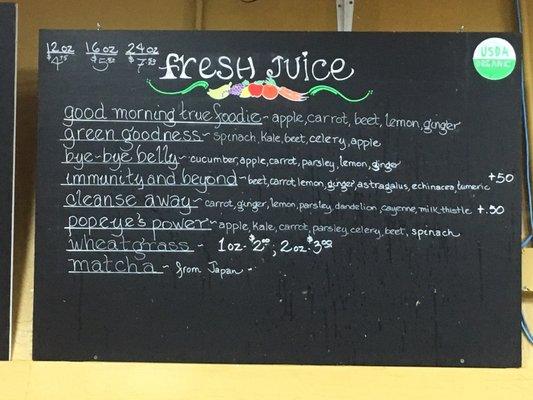 12 oz 16 oz 24 oz
fresh Juice
USDA
ORGANIC
good morning true foodie - apple, carrot, beet, lemon, ginger
green goodness - spinach, kale, beet, celery, apple
bye-bye belly - cucumber, apple, carrot, parsley, lemon, ginger
immunity and beyond - beet, carrot, lemon, ginger, astragalus, echinacea, tumeric +50
cleanse away - carrot, ginger, lemon, parsley, dandelion, cayenne, milk thistle +.50
popeye's power - apple, kale, carrot, parsley, celery, beet, spinach
wheatgrass - 1 oz. $2.00, 2 oz. $3.00
matcha - from Japan -